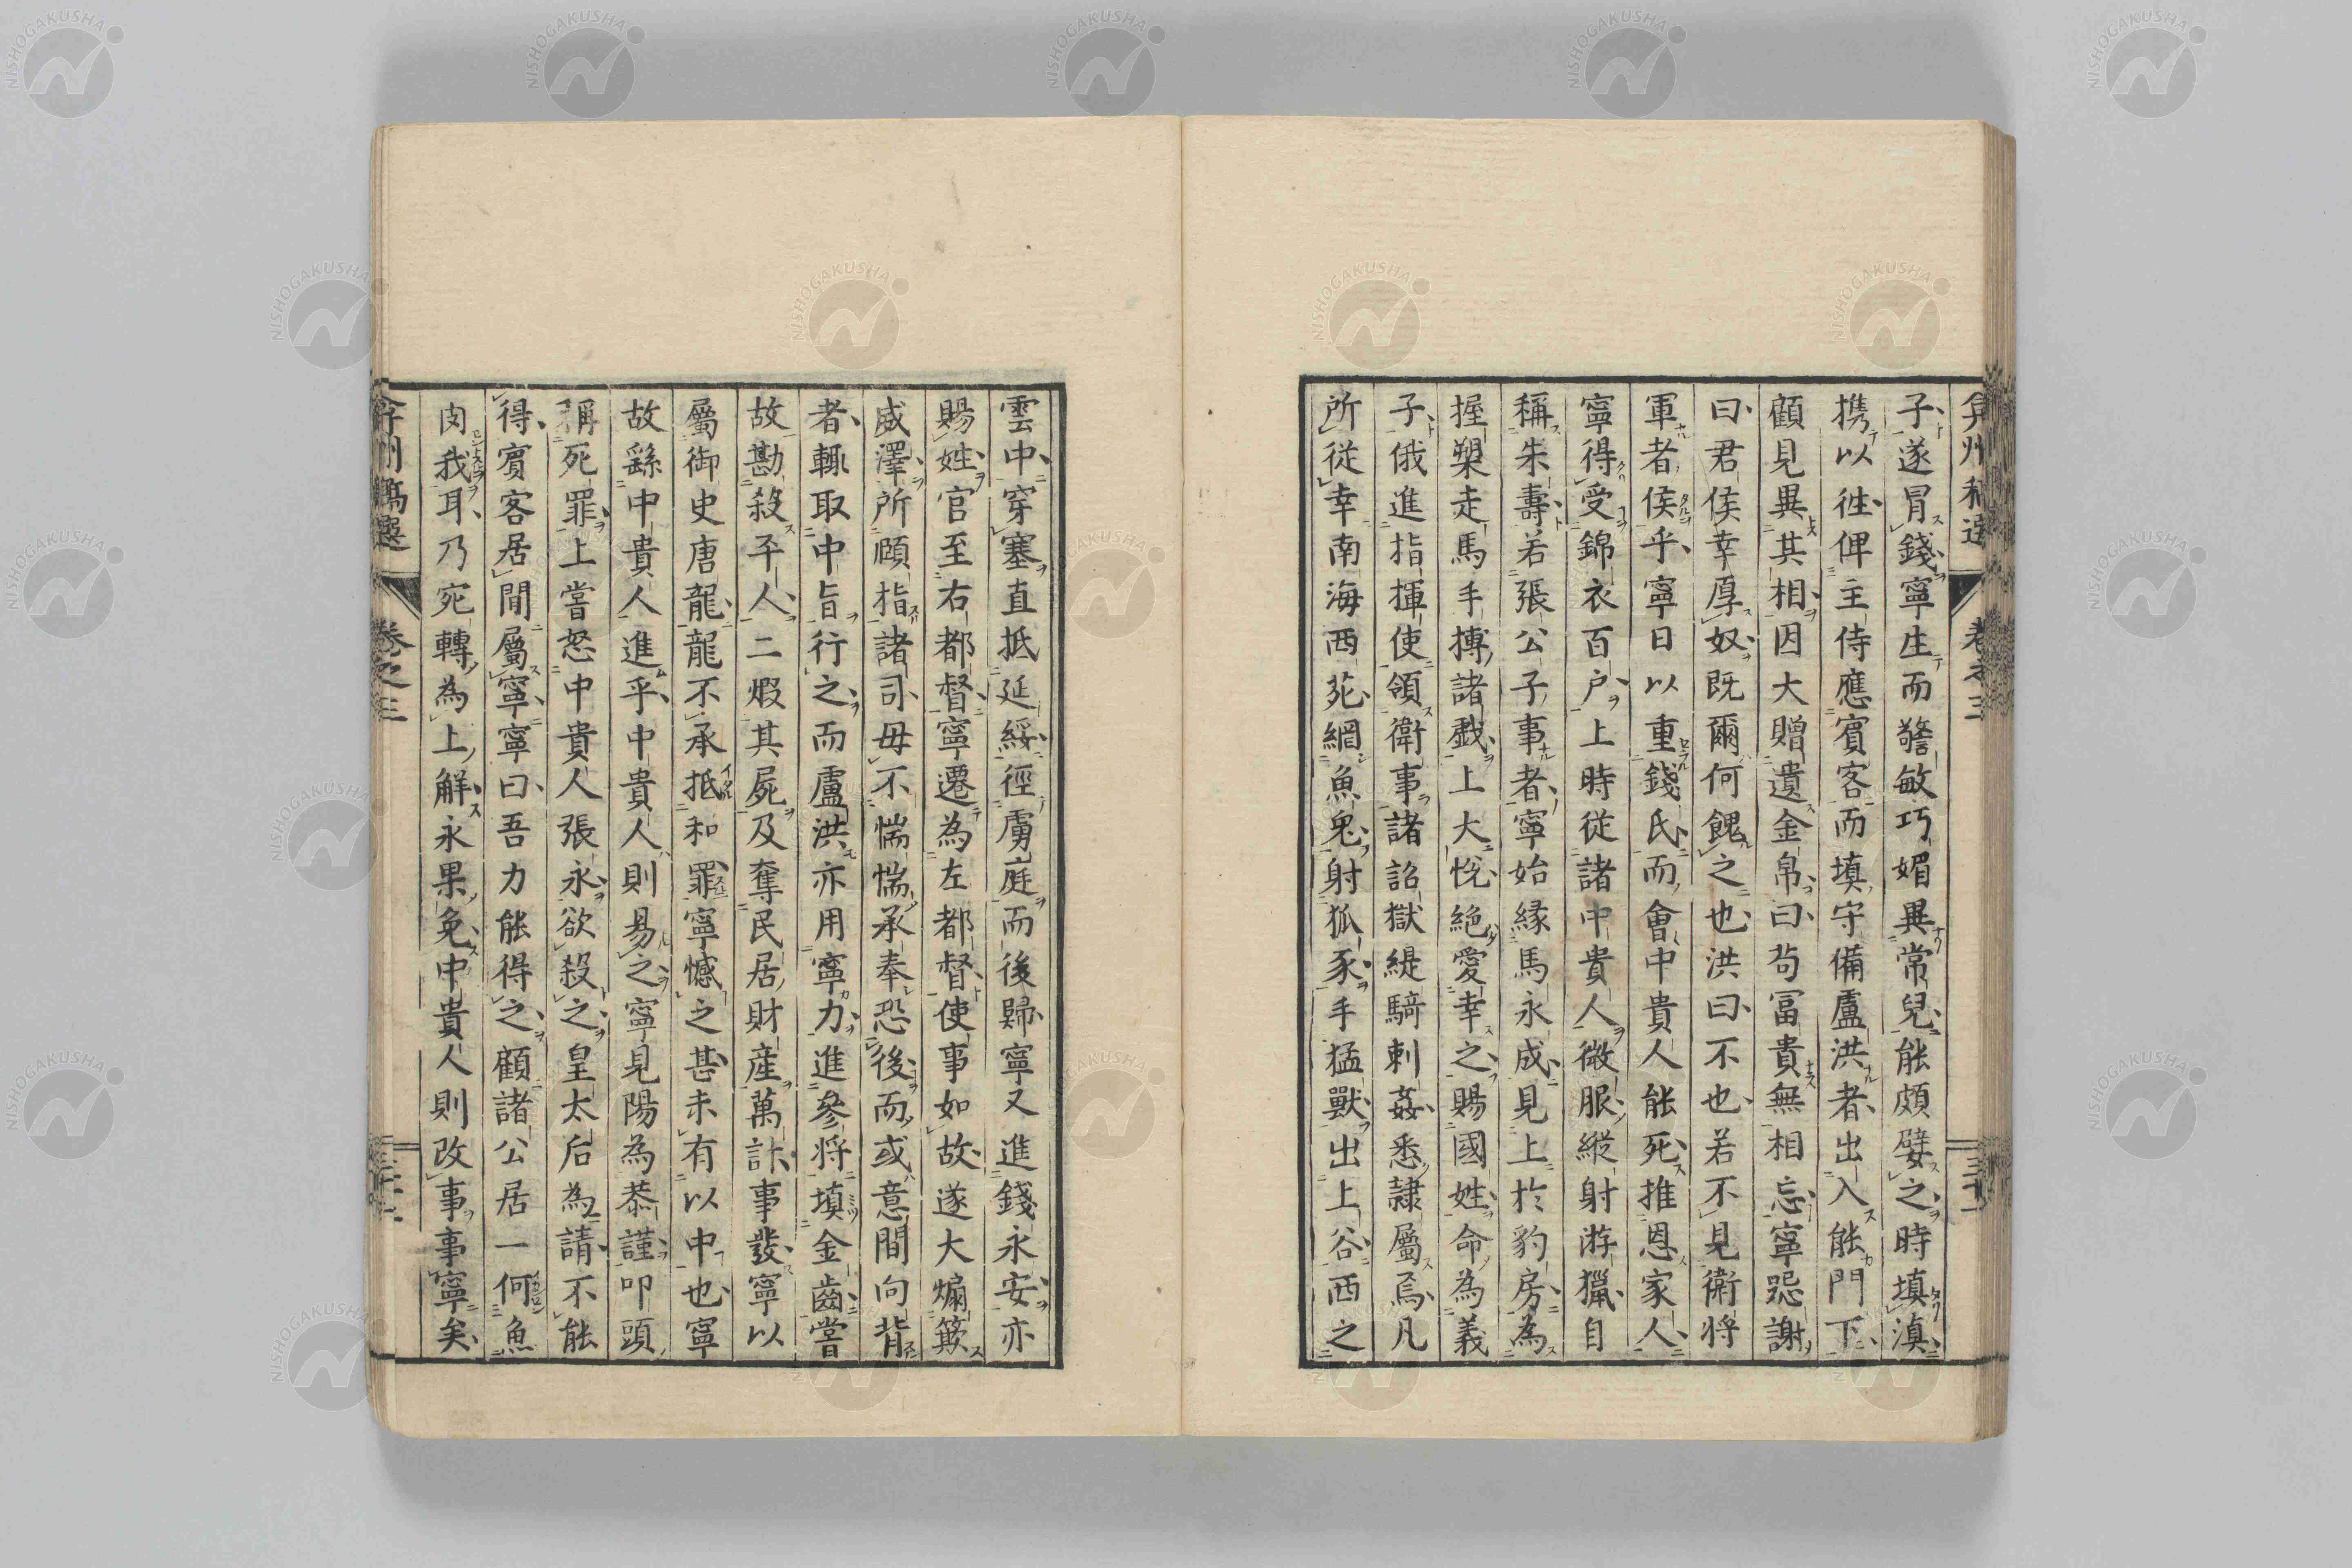 子遂冒錢寧生而警敏巧媚異常兒能頗嬖之時填滇
攜以徃俾主侍應賓客而填守備盧洪者出入能門下
顧見異其相因大贈遺金帛曰茍冨貴無相忘寧跽謝
曰君侯幸厚奴既爾何餽之也洪曰不也若不見衛將
軍者侯乎寧日以重錢氏而會中貴人能死推恩家人
寧得受錦衣百户上時從諸中貴人微服縱射游獵自
稱朱壽若張公子事者寧始緣馬永成見上於豹房為
握槊走馬手搏諸戲上大悅絕愛幸之賜國姓命為義
子俄進指揮使領衛事諸詔獄緹騎刺姦悉隷屬焉凡
所從幸南海西苑網魚鬼射狐豕手猛獸出上谷西之
雲中穿塞直抵延綏徑虜庭而後歸寧又進錢永安亦
賜姓官至右都督寧遷為左都督使事如故遂大煽簸
威澤所頤指諸司毋不惴惴承奉恐後而或意間向背
者輙取中旨行之而盧洪亦用寧力進參將填金齒嘗
故勘殺平人二煆其屍及奪民居財產萬計事發寧以
屬御史唐龍龍不承抵和罪寧憾之甚未有以中也寧
故繇中貴人進乎中貴人則易之寧見陽為恭謹叩頭
稱死罪上嘗怒中貴人張永欲殺之皇太后為請不能
得賓客居間屬寧寧曰吾力能得之顧諸公居一何魚
肉我耳乃宛轉為上解永果免中貴人則改事事寧矣
弇州稿選 卷之三